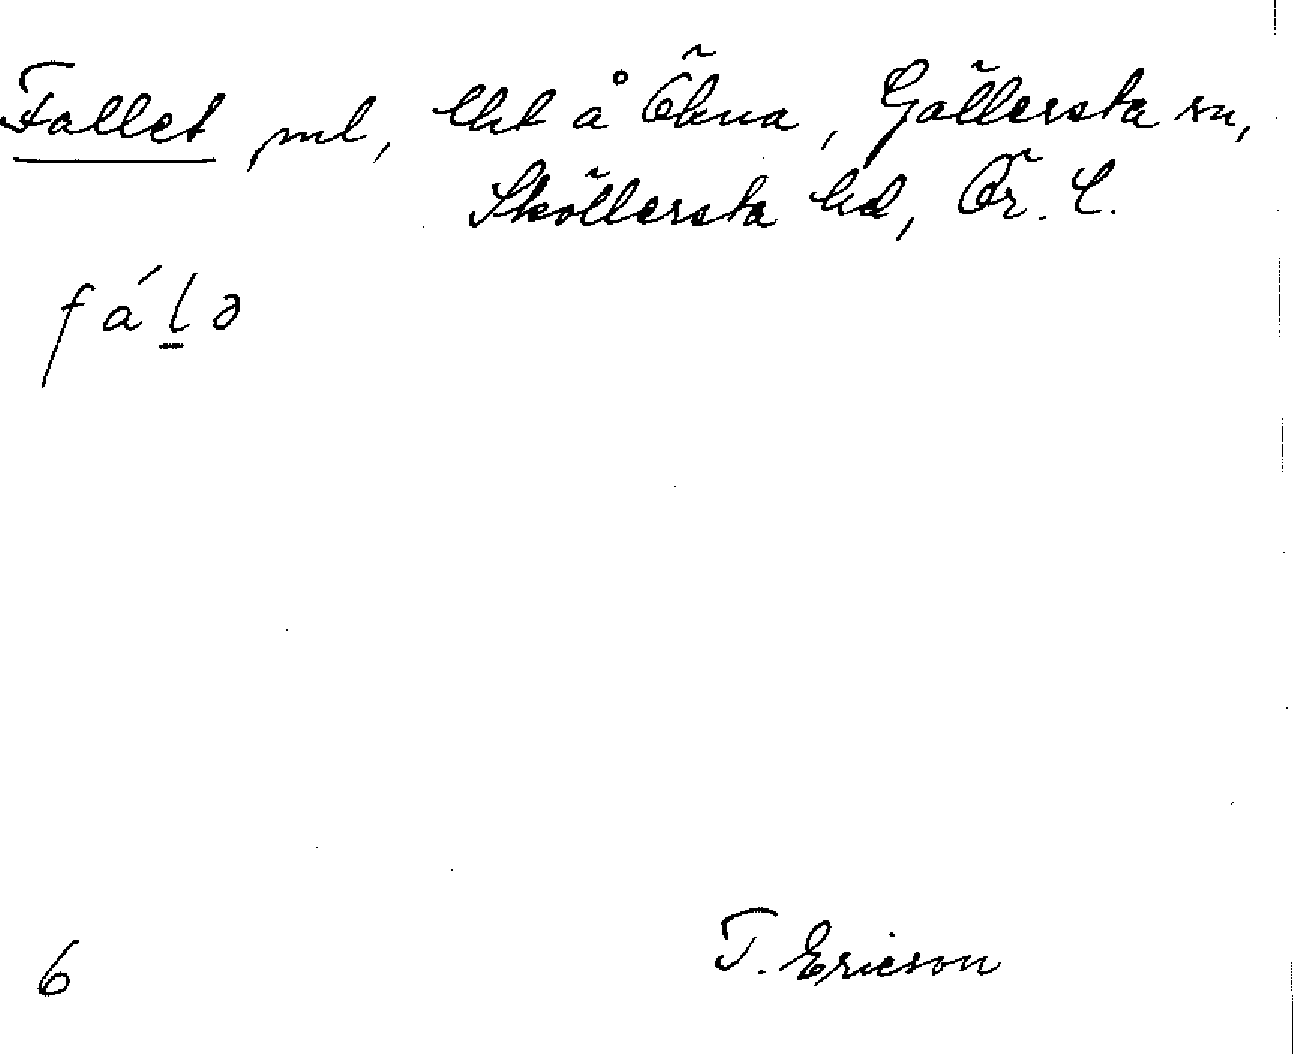 Fallet pml, lht å Ökna, Gällersta sn,
Sköllersta hd, Ör. l.
fál̲ə
6
T. Ericson